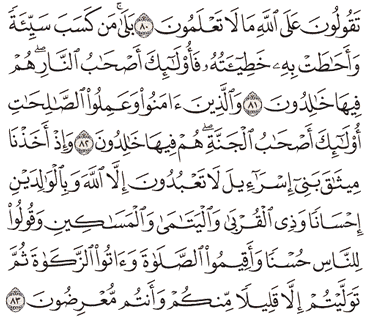 تَقُولُونَ عَلَى ٱللَّهِ مَا لَا تَعْلَمُونَ ۝٨٠ بَلَىٰۚ مَن كَسَبَ سَيِّئَةً
وَأَحَٰطَتْ بِهِۦ خَطِيٓـَٔتُهُۥ فَأُو۟لَٰٓئِكَ أَصْحَٰبُ ٱلنَّارِۖ هُمْ
فِيهَا خَٰلِدُونَ ۝٨١ وَٱلَّذِينَ ءَامَنُوا۟ وَعَمِلُوا۟ ٱلصَّٰلِحَٰتِ
أُو۟لَٰٓئِكَ أَصْحَٰبُ ٱلْجَنَّةِۖ هُمْ فِيهَا خَٰلِدُونَ ۝٨٢ وَإِذْ أَخَذْنَا
مِيثَٰقَ بَنِىٓ إِسْرَٰٓءِيلَ لَا تَعْبُدُونَ إِلَّا ٱللَّهَ وَبِٱلْوَٰلِدَيْنِ
إِحْسَانًا وَذِى ٱلْقُرْبَىٰ وَٱلْيَتَٰمَىٰ وَٱلْمَسَٰكِينِ وَقُولُوا۟
لِلنَّاسِ حُسْنًا وَأَقِيمُوا۟ ٱلصَّلَوٰةَ وَءَاتُوا۟ ٱلزَّكَوٰةَ ثُمَّ
تَوَلَّيْتُمْ إِلَّا قَلِيلًا مِّنكُمْ وَأَنتُم مُّعْرِضُونَ ۝٨٣